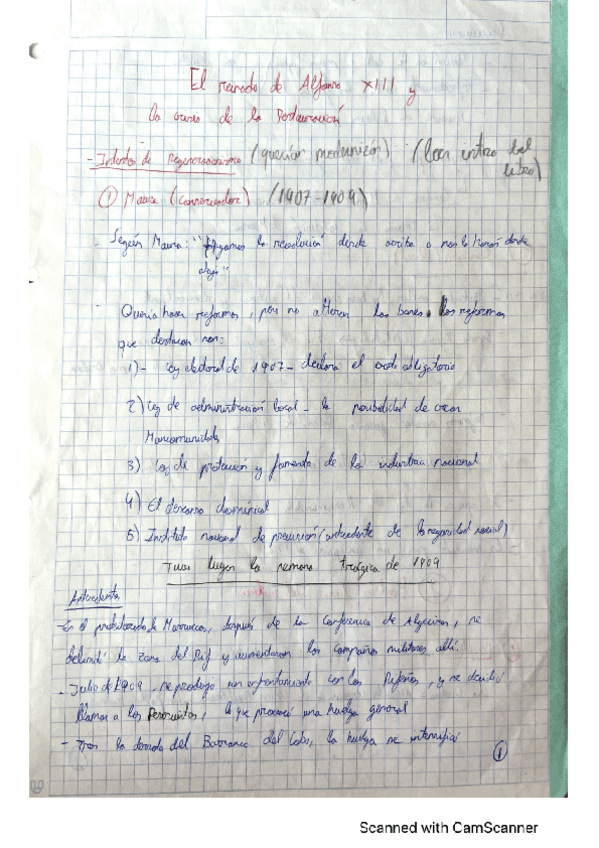 El reinado de Alfonso XIII y
la crisis de la Restauración
- Intentos de Regeneracionismo (querían modernizar) (leer intro del
libro)
① Maura (conservador) (1907-1909)
- Según Maura: "Hagamos la revolución desde arriba o nos la harán desde
abajo"
- Quería hacer reformas, pero no alterar las bases. Las reformas
que destacan son:
1)- Ley electoral de 1907- declara el voto obligatorio
2) Ley de administración local - la posibilidad de crear
Mancomunidades
3) Ley de protección y fomento de la industria nacional
4) El descanso dominical
5) Instituto nacional de previsión (antecedente de la seguridad social)
Tuvo lugar la semana trágica de 1909
Antecedentes
- En el protectorado de Marruecos, después de la Conferencia de Algeciras, se
delimitó la zona del Rif y aumentaron las campañas militares allí.
- Julio de 1909, se produjo un enfrentamiento con los Rifeños, y se decidió
llamar a los Reservistas, lo que provocó una huelga general
- Tras la derrota del Barranco del Lobo, la huelga se intensificó
①
Scanned with CamScanner